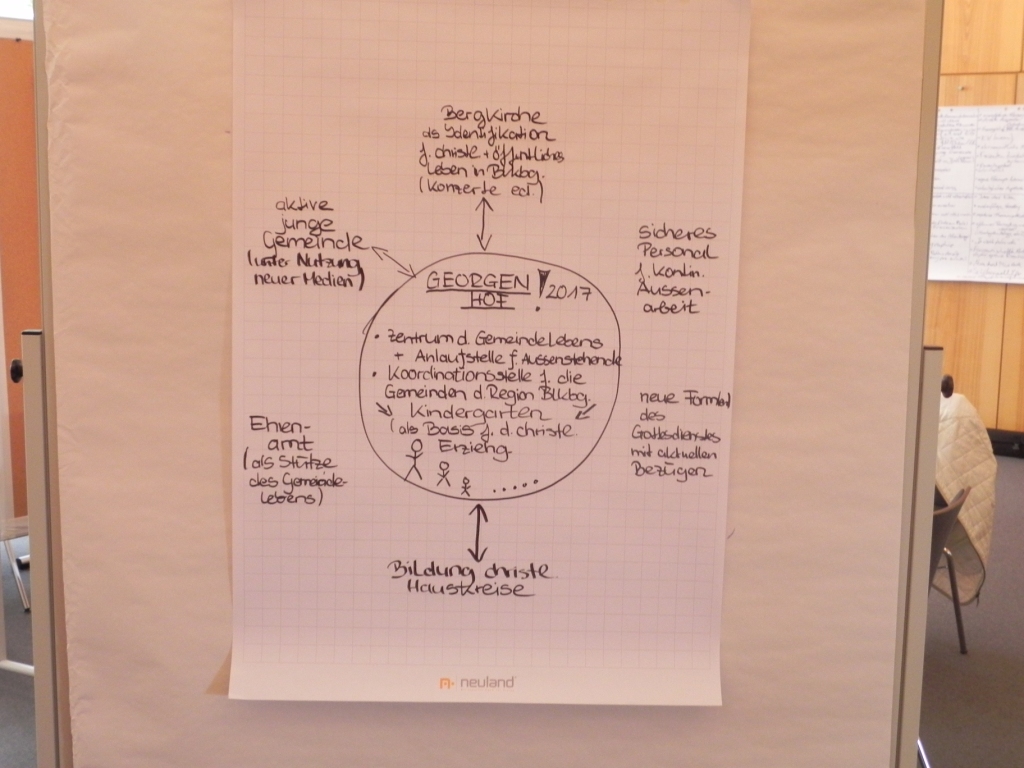 Bergkirche
als Identifikation
f. christl. + öffentliches
Leben in Blkbg.
(Konzerte ect.)
aktive
junge
Gemeinde
(unter Nutzung
neuer Medien)
sicheres
Personal
f. Kontin.
Aussen-
arbeit
GEORGEN
HOF
! 2017
• Zentrum d. Gemeindelebens
+ Anlaufstelle f. Aussenstehende
• Koordinationsstelle f. die
Gemeinden d. Region Blkbg.
Kindergarten
(als Basis f. d. christl.
Erziehg.
.....
Ehren-
amt
(als Stütze
des Gemeinde-
lebens)
neue Formen
des
Gottesdienstes
mit aktuellen
Bezügen
Bildung christl.
Hauskreise
neuland